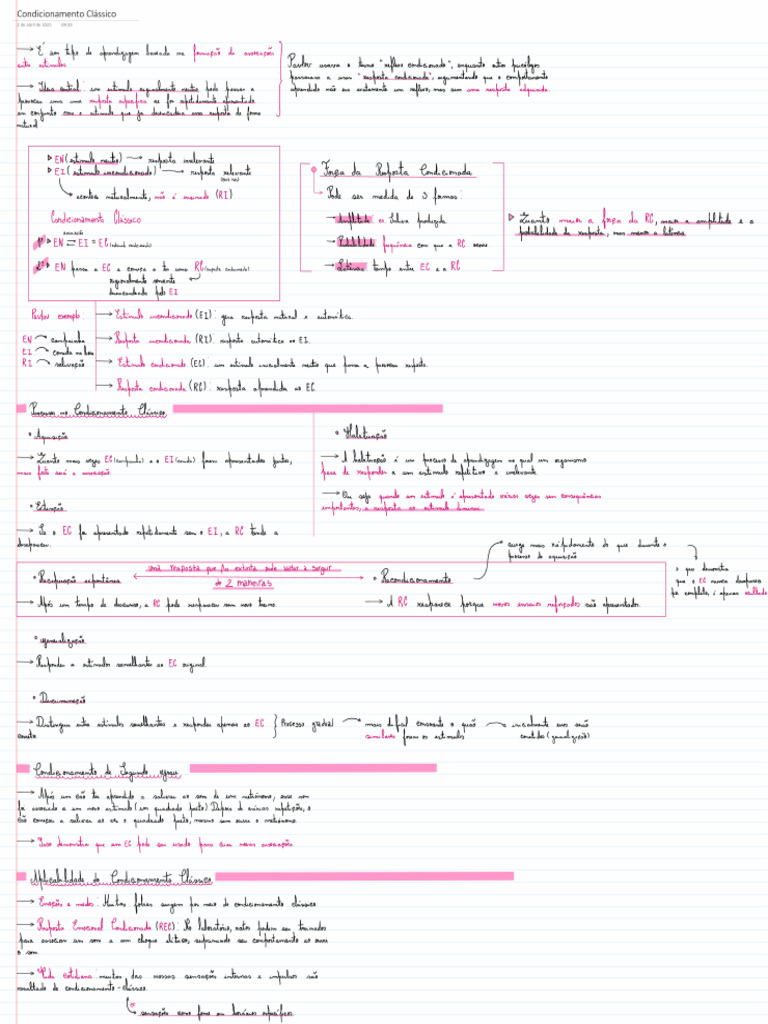 Condicionamento Clássico
2 de abril de 2025 09:33
→ É um tipo de aprendizagem baseada na formação de associações
entre estímulos.
→ Ideia central: um estímulo originalmente neutro pode passar a
provocar uma resposta específica se for repetidamente apresentado
em conjunto com o estímulo que já desencadeia essa resposta de forma
natural
Pavlov usava o termo "reflexo condicionado", enquanto outros psicólogos
passaram a usar "resposta condicionada", argumentando que o comportamento
aprendido não era exatamente um reflexo, mas sim uma resposta adquirida.
EN (estímulo neutro) → resposta irrelevante
EI (estímulo incondicionado) → resposta relevante
acontece naturalmente, não é ensinado (RI)
Condicionamento Clássico
associação
1º EN = EI = EC (estímulo condicionado)
2º EN passa a EC e começa a ter uma RC (resposta condicionada)
originalmente somente
desencadeada pelo EI
Força da Resposta Condicionada
Pode ser medida de 3 formas:
→ Amplitude saliva produzida
→ Probabilidade frequência com que a RC ocorre
→ Latência tempo entre EC e a RC
Quanto maior a força da RC, maior a amplitude e a
probabilidade de resposta, mas menor a latência
Pavlov exemplo:
EN → campainha
EI → comida na boca
RI → salivação
→ Estímulo incondicionado (EI): gera resposta natural e automática.
→ Resposta incondicionada (RI): resposta automática ao EI.
→ Estímulo condicionado (EC): um estímulo inicialmente neutro que passa a provocar resposta.
→ Resposta condicionada (RC): resposta aprendida ao EC.
Processos no Condicionamento Clássico
• Aquisição
→ Quanto mais vezes EC (campainha) e o EI (comida) forem apresentados juntos,
mais forte será a associação
• Extinção
→ Se o EC for apresentado repetidamente sem o EI, a RC tende a
desaparecer.
• Habituação
→ A habituação é um processo de aprendizagem no qual um organismo
para de responder a um estímulo repetitivo e irrelevante.
→ Ou seja quando um estímulo é apresentado várias vezes sem consequências
importantes, a resposta ao estímulo diminui
surge mais rapidamente do que durante o
processo de aquisição
uma resposta que foi extinta pode voltar a surgir
de 2 maneiras
• Recuperação espontânea
→ Após um tempo de descanso, a RC pode reaparecer sem novo treino.
• Recondicionamento
→ A RC reaparece porque novos ensaios reforçados são apresentados.
o que demonstra
que o EC nunca desaparece
por completo, é apenas ocultado
• Generalização
→ Responder a estímulos semelhantes ao EC original.
• Discriminação
→ Distinguir entre estímulos semelhantes e responder apenas ao EC
correto
Processo gradual → mais difícil consoante o quão
similares forem os estímulos
→ inicialmente erros serão
cometidos (generalização)
Condicionamento de Segunda ordem
→ Após um cão ter aprendido a salivar ao som de um metrónomo, esse som
foi associado a um novo estímulo (um quadrado preto) Depois de várias repetições, o
cão começou a salivar ao ver o quadrado preto, mesmo sem ouvir o metrónomo.
→ Isso demonstra que um EC pode ser usado para criar novas associações.
Aplicabilidade do Condicionamento Clássico
→ Emoções e medos: Muitas fobias surgem por meio do condicionamento clássico
→ Resposta Emocional Condicionada (REC): No laboratório, ratos podem ser treinados
para associar um som a um choque elétrico, suprimindo seu comportamento ao ouvir
o som.
→ Vida cotidiana: muitas das nossas sensações internas e impulsos são
resultado de condicionamento clássico.
sensações como fome ou horários específicos